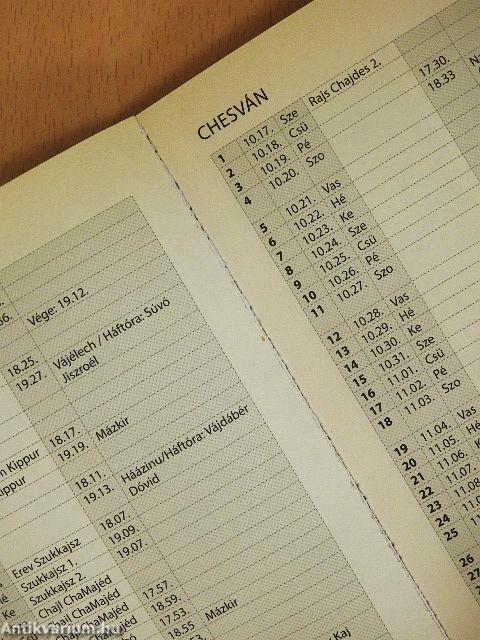 Vége: 19.12.
18.25.
19.27. Vájélech / Háftóra: Súvó
Jiszroél
Kippur 18.17.
Kippur 19.19. Mázkir
18.11.
19.13. Háázinu/Háftóra: Vájdábér
Dóvid
18.07.
Erev Szukkajsz 19.09.
Szukkajsz 1. 19.07.
Ke Szukkajsz 2.
Chajl ChaMajéd
ChaMajéd 17.57.
ChaMajéd 18.59.
17.53. Mázkir
18.55
CHESVÁN
1 10.17. Sze Rajs Chajdes 2.
2 10.18. Csü
3 10.19. Pé 17.30.
4 10.20. Szo 18.33
5 10.21. Vas
6 10.22. Hé
7 10.23. Ke
8 10.24. Sze
9 10.25. Csü
10 10.26. Pé
11 10.27. Szo
12 10.28. Vas
13 10.29. Hé
14 10.30. Ke
15 10.31. Sze
16 11.01. Csü
17 11.02. Pé
18 11.03. Szo
19 11.04. Vas
20 11.05. Hé
21 11.06.
22 11.07.
23 11.08
24
25
26
Antikvarium.hu